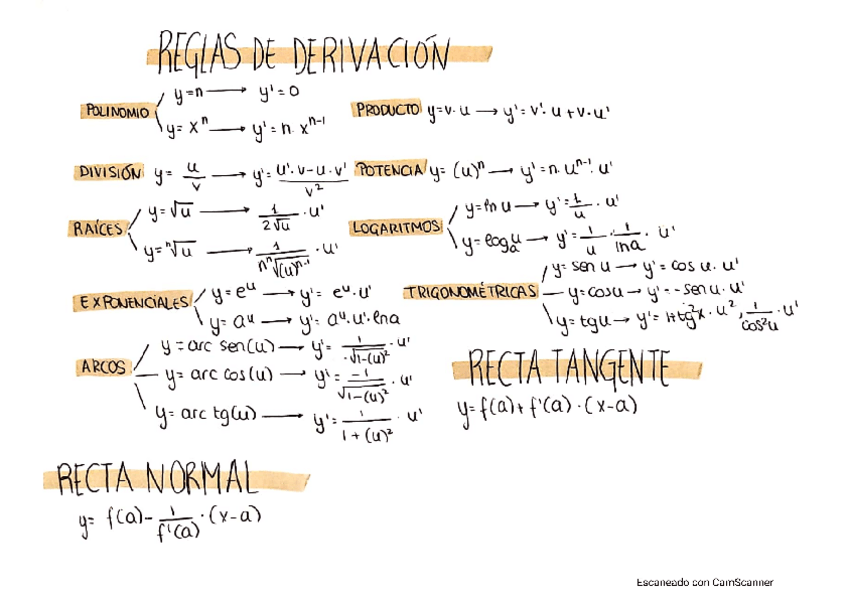 REGLAS DE DERIVACIÓN
POLINOMIO
y=n → y'=0
y= xⁿ → y'= n· xⁿ⁻¹
PRODUCTO y=v·u → y'= v'·u + v·u'
DIVISIÓN y= u/v → y'= (u'·v-u·v')/v²
POTENCIA y= (u)ⁿ → y'= n·uⁿ⁻¹·u'
RAÍCES
y=√u → 1/(2√u) ·u'
y=ⁿ√u → 1/(n ⁿ√(u)ⁿ⁻¹) ·u'
LOGARITMOS
y=ln u → y'= 1/u · u'
y=logₐu → y'= 1/u · 1/lna · u'
EXPONENCIALES
y=eᵘ → y'= eᵘ·u'
y= aᵘ → y'= aᵘ·u'·lna
TRIGONOMÉTRICAS
y= sen u → y'= cos u· u'
y=cosu → y'=-senu·u'
y=tgu → y'= 1+tg²x·u², 1/cos²u ·u'
ARCOS
y= arc sen(u) → y'= 1/√1-(u)² ·u'
y= arc cos(u) → y'= -1/√1-(u)² ·u'
y= arc tg(u) → y'= 1/(1+(u)²) ·u'
RECTA TANGENTE
y=f(a)+f'(a)·(x-a)
RECTA NORMAL
y= f(a)- 1/f'(a) ·(x-a)
Escaneado con CamScanner